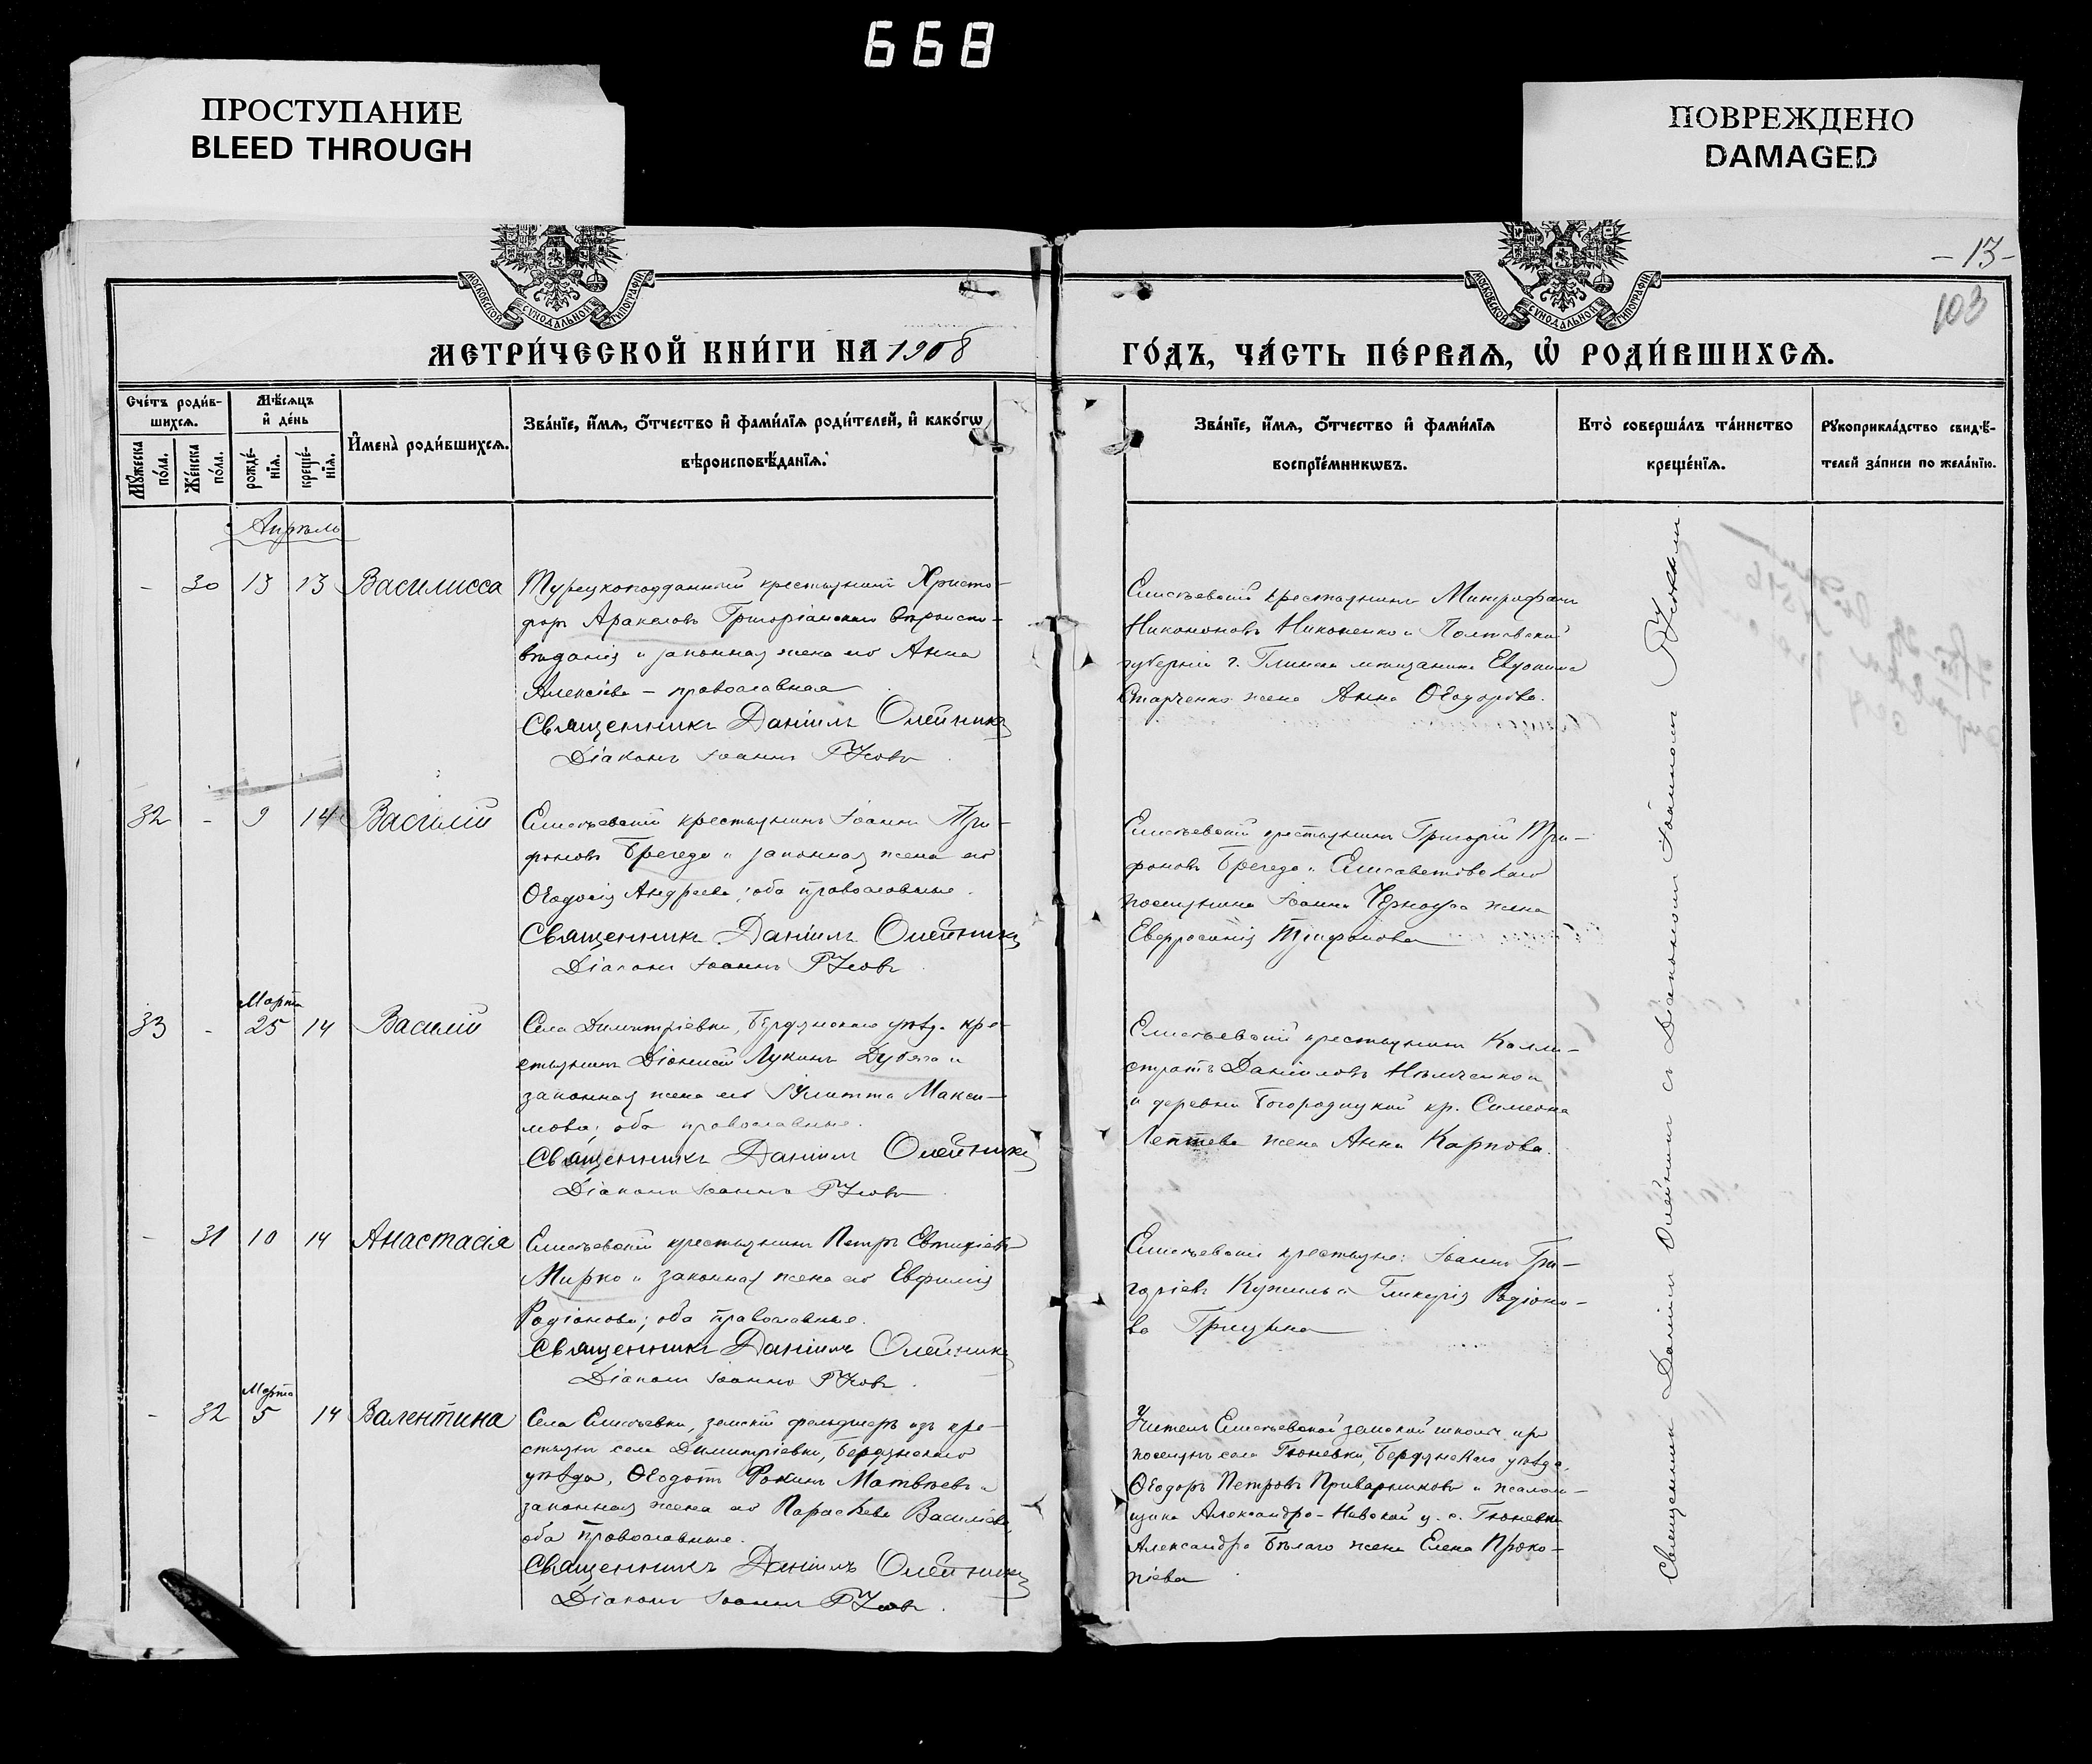 668
ПРОСТУПАНИЕ
BLEED THROUGH
ПОВРЕЖДЕНО
DAMAGED
-13-
103
МОСКОВСКОЙ СѴНОДАЛЬНОЙ ТИПОГРАФІИ
МОСКОВСКОЙ СѴНОДАЛЬНОЙ ТИПОГРАФІИ
МЕТРИ́ЧЕСКОЙ КНИ́ГИ НА 1908
ГО́ДЪ, ЧА́СТЬ ПЕ́РВАѦ, Ѽ РОДИ́ВШИХСѦ.
Сче́тъ роди́в-
шихсѧ.
Мѣ́сѧцъ
и҆ де́нь
Мꙋ́жеска
по́ла.
Же́нска
по́ла.
рожде́-
нїѧ.
креще́-
нїѧ.
И҆мена̀ роди́вшихсѧ.
Зва́нїе, и҆́мѧ, ѻ҆́тчество и҆ фами́лїѧ роди́телей, и҆ како́гѡ
вѣроисповѣ́данїѧ.
Зва́нїе, и҆́мѧ, ѻ҆́тчество и҆ фами́лїѧ
воспрїе́мникѡвъ.
Кто̀ соверша́лъ та́инство
креще́нїѧ.
Рꙋкоприкла́дство свидѣ́-
телей за́писи по жела́нїю.
Апрѣль
- 30 13 13 Василисса
Турецкоподданный крестьянинъ Христо-
форъ Аракеловъ Григоріанскаго вѣроиспо-
вѣданія и законная жена его Анна
Алексіева - православная
Священникъ Даніилъ Олейникъ
Діаконъ Іоаннъ
Елисѣевскій крестьянинъ Митрофанъ
Никоновъ Никоненко и Полтавской
губерніи г. Глинска мѣщанина Евдокима
Старченко жена Анна Ѳеодорова.
32 - 9 14 Василій
Елисѣевскій крестьянинъ Іоаннъ Три-
фоновъ Брегеда и законная жена его
Ѳеодосія Андреева; оба православные.
Священникъ Даніилъ Олейникъ
Діаконъ Іоаннъ
Елисѣевскій крестьянинъ Григорій Три-
фоновъ Брегеда и Елисаветовскаго
поселянина Іоанна Черноуса жена
Евфросинія Трифонова
Марта
33 - 25 14 Василій
Села Димитріевки, Бердянскаго уѣзда кре-
стьянинъ Діонисій Лукинъ Дубяга и
законная жена его Іулитта Макси-
мова; оба православные.
Священникъ Даніилъ Олейникъ
Діаконъ Іоаннъ
Елисѣевскій крестьянинъ Калли-
стратъ Даніиловъ Нѣмченко и
и деревни Богородицкой кр. Симеона
Лептева жена Анна Карпова.
- 31 10 14 Анастасія
Елисѣевскій крестьянинъ Петръ Евтихіевъ
Мирко и законная жена его Евфимія
Родіонова; оба православные.
Священникъ Даніилъ Олейникъ
Діаконъ Іоаннъ
Елисѣевскіе крестьяне: Іоаннъ Гри-
горіевъ и Гликерія Родіоно-
ва
Марта
- 32 5 14 Валентина
Села Елисѣевки, земскій фельдшеръ изъ кре-
стьянъ села Димитріевки, Бердянскаго
уѣзда, Ѳеодотъ Фокинъ Матвѣевъ и
законная жена его Параскева Васильева
оба православные.
Священникъ Даніилъ Олейникъ
Діаконъ Іоаннъ
Учитель Елисѣевской земской школы
поселянъ села Гюневки, Бердянскаго уѣзда,
Ѳеодоръ Петровъ Приварниковъ и псалом-
щика Александро-Невской ц. с. Гюневки
Александра Бѣлаго жена Елена Проко-
піева
Священникъ Даніилъ Олейникъ съ Діакономъ Іоанномъ